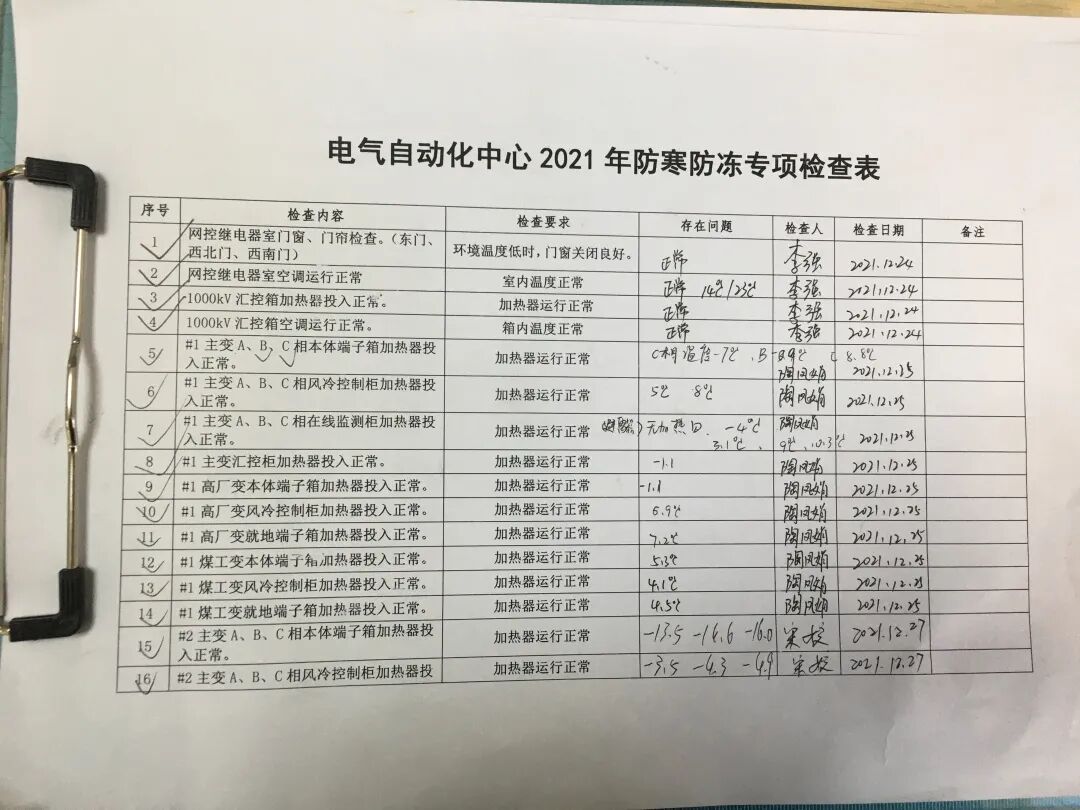 电气自动化中心 2021 年防寒防冻专项检查表
序号 检查内容 检查要求 存在问题 检查人 检查日期 备注
1 网控继电器室门窗、门帘检查。（东门、 环境温度低时，门窗关闭良好。 正常 李强 2021.12.24
西北门、西南门）
2 网控继电器室空调运行正常 室内温度正常 正常 14℃/23℃ 李强 2021.12.24
3 1000kV 汇控箱加热器投入正常。 加热器运行正常 正常 李强 2021.12.24
4 1000kV 汇控箱空调运行正常。 箱内温度正常 正常 李强 2021.12.24
5 #1 主变 A、B、C 相本体端子箱加热器投 加热器运行正常 C相温度-7℃、B 8.8℃
入正常。 陶凤娟 2021.12.25
6 #1 主变 A、B、C 相风冷控制柜加热器投 加热器运行正常 5℃ 8℃ 陶凤娟 2021.12.25
入正常。
7 #1 主变 A、B、C 相在线监测柜加热器投 加热器运行正常 无加热 -4℃ 陶凤娟 2021.12.25
入正常。 3.1℃、 9℃、10.3℃
8 #1 主变汇控柜加热器投入正常。 加热器运行正常 -1.1 陶凤娟 2021.12.25
9 #1 高厂变本体端子箱加热器投入正常。 加热器运行正常 -1.1 陶凤娟 2021.12.25
10 #1 高厂变风冷控制柜加热器投入正常。 加热器运行正常 6.9℃ 陶凤娟 2021.12.25
11 #1 高厂变就地端子箱加热器投入正常。 加热器运行正常 7.2℃ 陶凤娟 2021.12.25
12 #1 煤工变本体端子箱加热器投入正常。 加热器运行正常 5.3℃ 陶凤娟 2021.12.25
13 #1 煤工变风冷控制柜加热器投入正常。 加热器运行正常 4.1℃ 陶凤娟 2021.12.25
14 #1 煤工变就地端子箱加热器投入正常。 加热器运行正常 4.5℃ 陶凤娟 2021.12.25
15 #2 主变 A、B、C 相本体端子箱加热器投 加热器运行正常 -13.5 -14.6 -16.0 2021.12.27
入正常。
16 #2 主变 A、B、C 相风冷控制柜加热器投 加热器运行正常 -3.5 -4.3 -4.9 2021.12.27